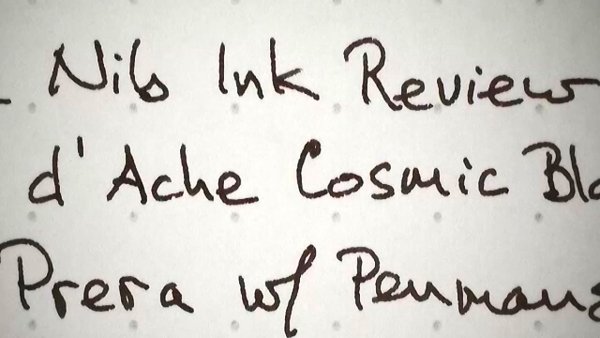 - Nib Ink Review
d'Ache Cosmic Bla
Prera w/ Penmans